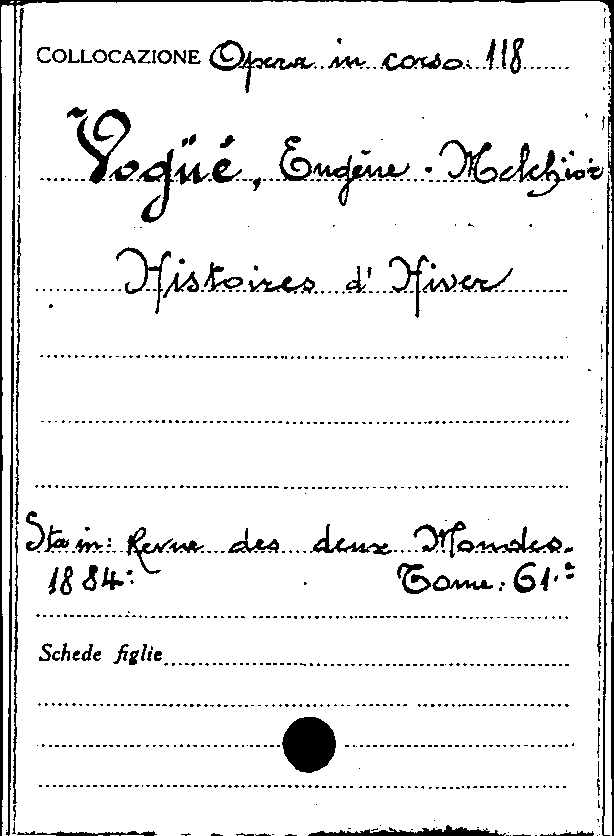 COLLOCAZIONE Opera in corso: 118
Vogüé, Eugène - Melchior
Histoires d' Hiver
Sta in: Revue des deux Mondes.
1884: Tome: 61.º
Schede figlie